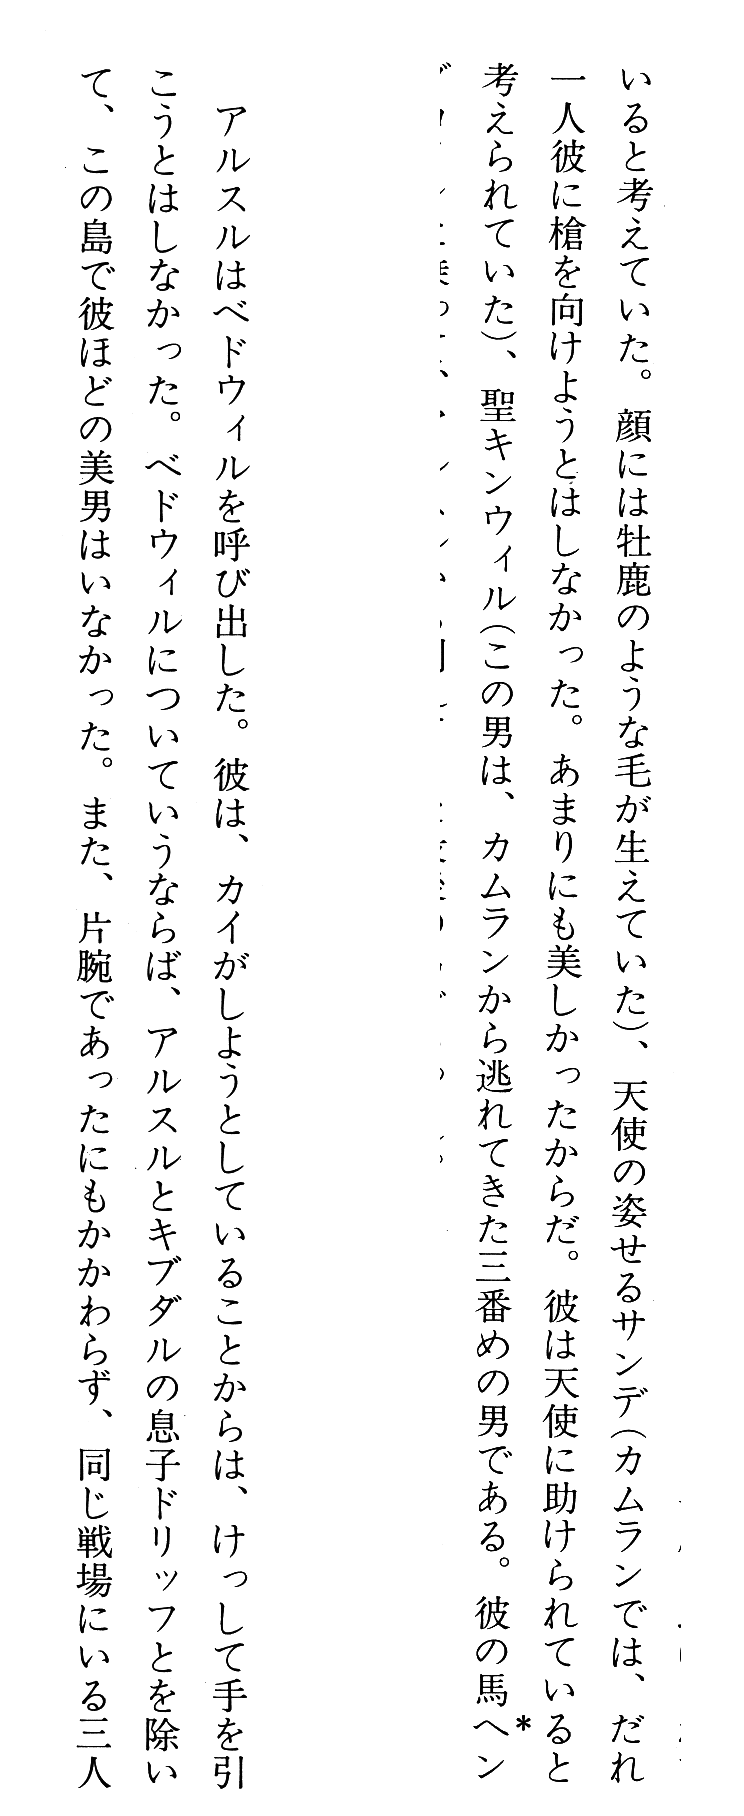 いると考えていた。顔には牡鹿のような毛が生えていた)、天使の姿せるサンデ(カムランでは、だれ
一人彼に槍を向けようとはしなかった。あまりにも美しかったからだ。彼は天使に助けられていると
考えられていた)、聖キンウィル(この男は、カムランから逃れてきた三番めの男である。彼の馬*ヘン
アルスルはベドウィルを呼び出した。彼は、カイがしようとしていることからは、けっして手を引
こうとはしなかった。ベドウィルについていうならば、アルスルとキブダルの息子ドリッフとを除い
て、この島で彼ほどの美男はいなかった。また、片腕であったにもかかわらず、同じ戦場にいる三人